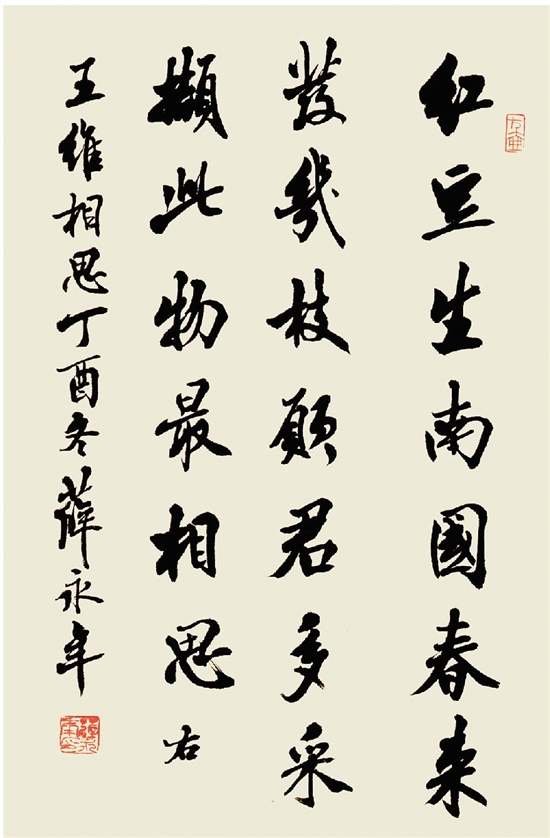 红豆生南國春来
發幾枝願君多采
擷此物最相思右
王維相思丁酉冬薛永年